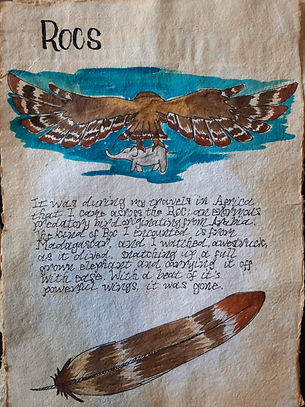 ROCS
It was during my travels in Africa
that I came across the Roc; an enormous
predatory bird originating from Arabia.
The kind of Roc I encounted, is from
Madagascar, and I watched, awestruck,
as it dived, snatching up a full
grown elephant and carrying it off
with ease. With a beat of it's
powerful wings, it was gone.